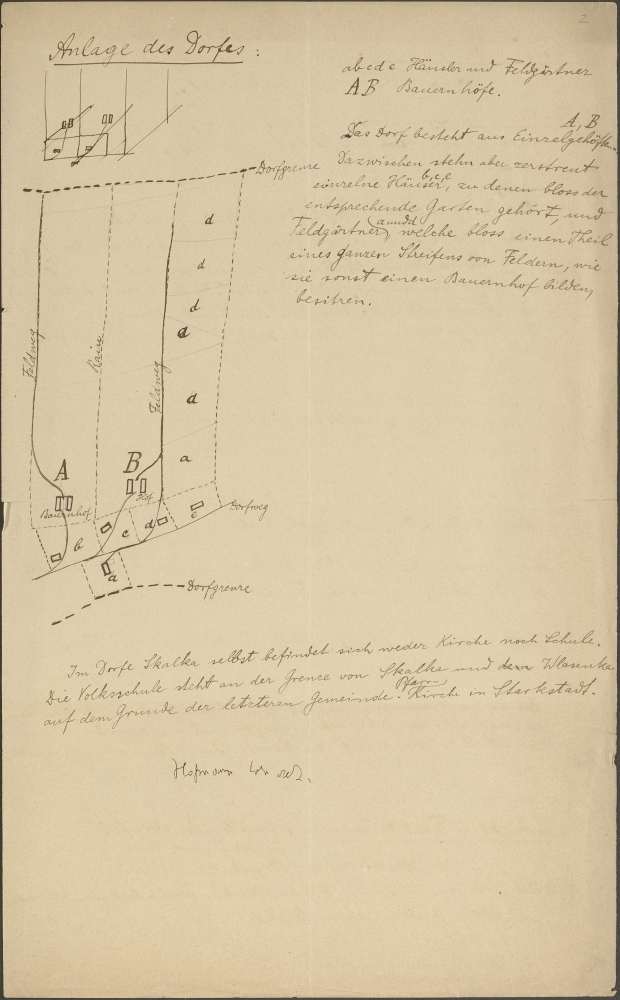 2
Anlage des Dorfes:
abcde Häusler und Feldgärtner
A B Bauernhöfe.
A, B
Das Dorf besteht aus Einzelgehöften.
Dazwischen stehn aber zerstreut
b, c, e
einzelne Häusler, zu denen bloss der
entsprechende Garten gehört, und
a und d
Feldgärtner, welche bloss einen Theil
eines ganzen Streifens von Feldern, wie
sie sonst einen Bauernhof bilden,
besitzen.
Dorfgrenze
d
d
d
d
d
a
Feldweg
Raine
Feldweg
A
B
Bauernhof
Hof
b
c
d
e
a
Dorfweg
Dorfgrenze
Im Dorfe Skalka selbst befindet sich weder Kirche noch Schule.
Die Volksschule steht an der Grenze von Skalka und dem Wlasenka
auf dem Grunde der letzteren Gemeinde. Kirche in Starkstadt.
Pfarr
Hofmann